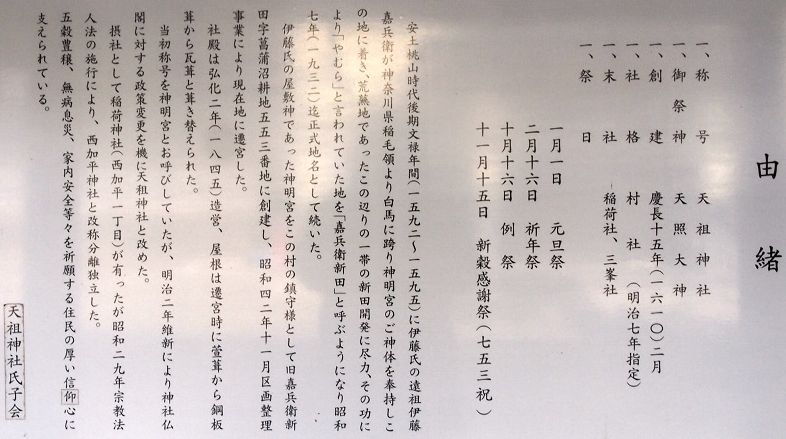 由緒
一、称号 天祖神社
一、御祭神 天照大神
一、創建 慶長十五年(一六一〇)二月
一、社格 村社(明治七年指定)
一、末社 稲荷社、三峯社
一、祭日
一月一日 元旦祭
二月十六日 祈年祭
十月十六日 例祭
十一月十五日 新穀感謝祭(七五三祝)
安土桃山時代後期文禄年間(一五九二～一五九五)に伊藤氏の遠祖伊藤
嘉兵衛が神奈川県稲毛領より白馬に跨り神明宮のご神体を奉持しこ
の地に着き、荒蕪地であったこの辺りの一帯の新田開発に尽力、その功に
より「やむら」と言われていた地を「嘉兵衛新田」と呼ぶようになり昭和
七年(一九三二)迄正式地名として続いた。
伊藤氏の屋敷神であった神明宮をこの村の鎮守様として旧嘉兵衛新
田字菖蒲沼耕地五五三番地に創建し、昭和四二年十一月区画整理
事業により現在地に遷宮した。
社殿は弘化二年(一八四五)造営、屋根は遷宮時に萱葺から銅板
葺から瓦葺と葺き替えられた。
当初称号を神明宮とお呼びしていたが、明治二年維新により神社仏
閣に対する政策変更を機に天祖神社と改めた。
摂社として稲荷神社(西加平一丁目)が有ったが昭和二九年宗教法
人法の施行により、西加平神社と改称分離独立した。
五穀豊穣、無病息災、家内安全等々を祈願する住民の厚い信仰心に
支えられている。
天祖神社氏子会